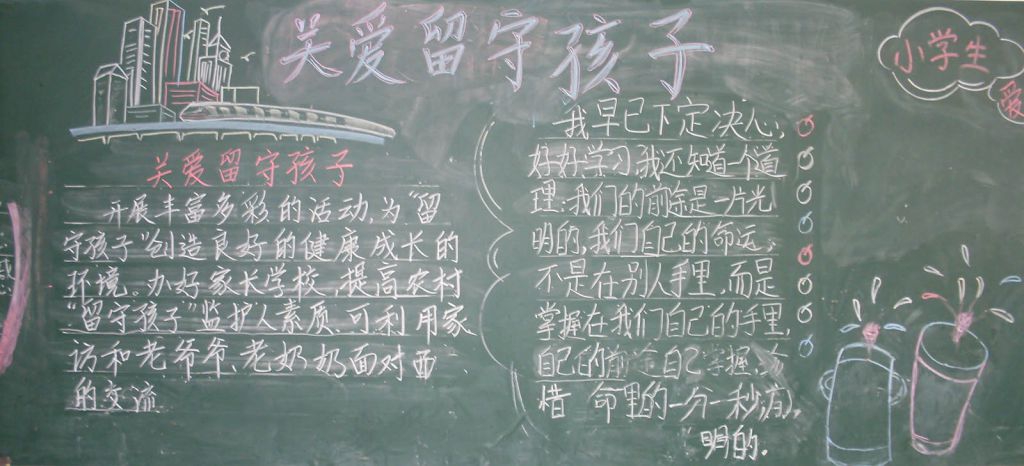 关爱留守孩子
小学生
爱
关爱留守孩子
开展丰富多彩的活动,为“留
守孩子”创造良好的健康成长的
环境。办好家长学校,提高农村
“留守孩子”监护人素质,可利用家
访和老爷爷、老奶奶面对面
的交流
我早已下定决心,
好好学习,我还知道一个道
理:我们的前途是一片光
明的,我们自己的命运,
不是在别人手里,而是
掌握在我们自己的手里,
自己的前途自己掌握,
惜 命里的一分一秒,
明的.